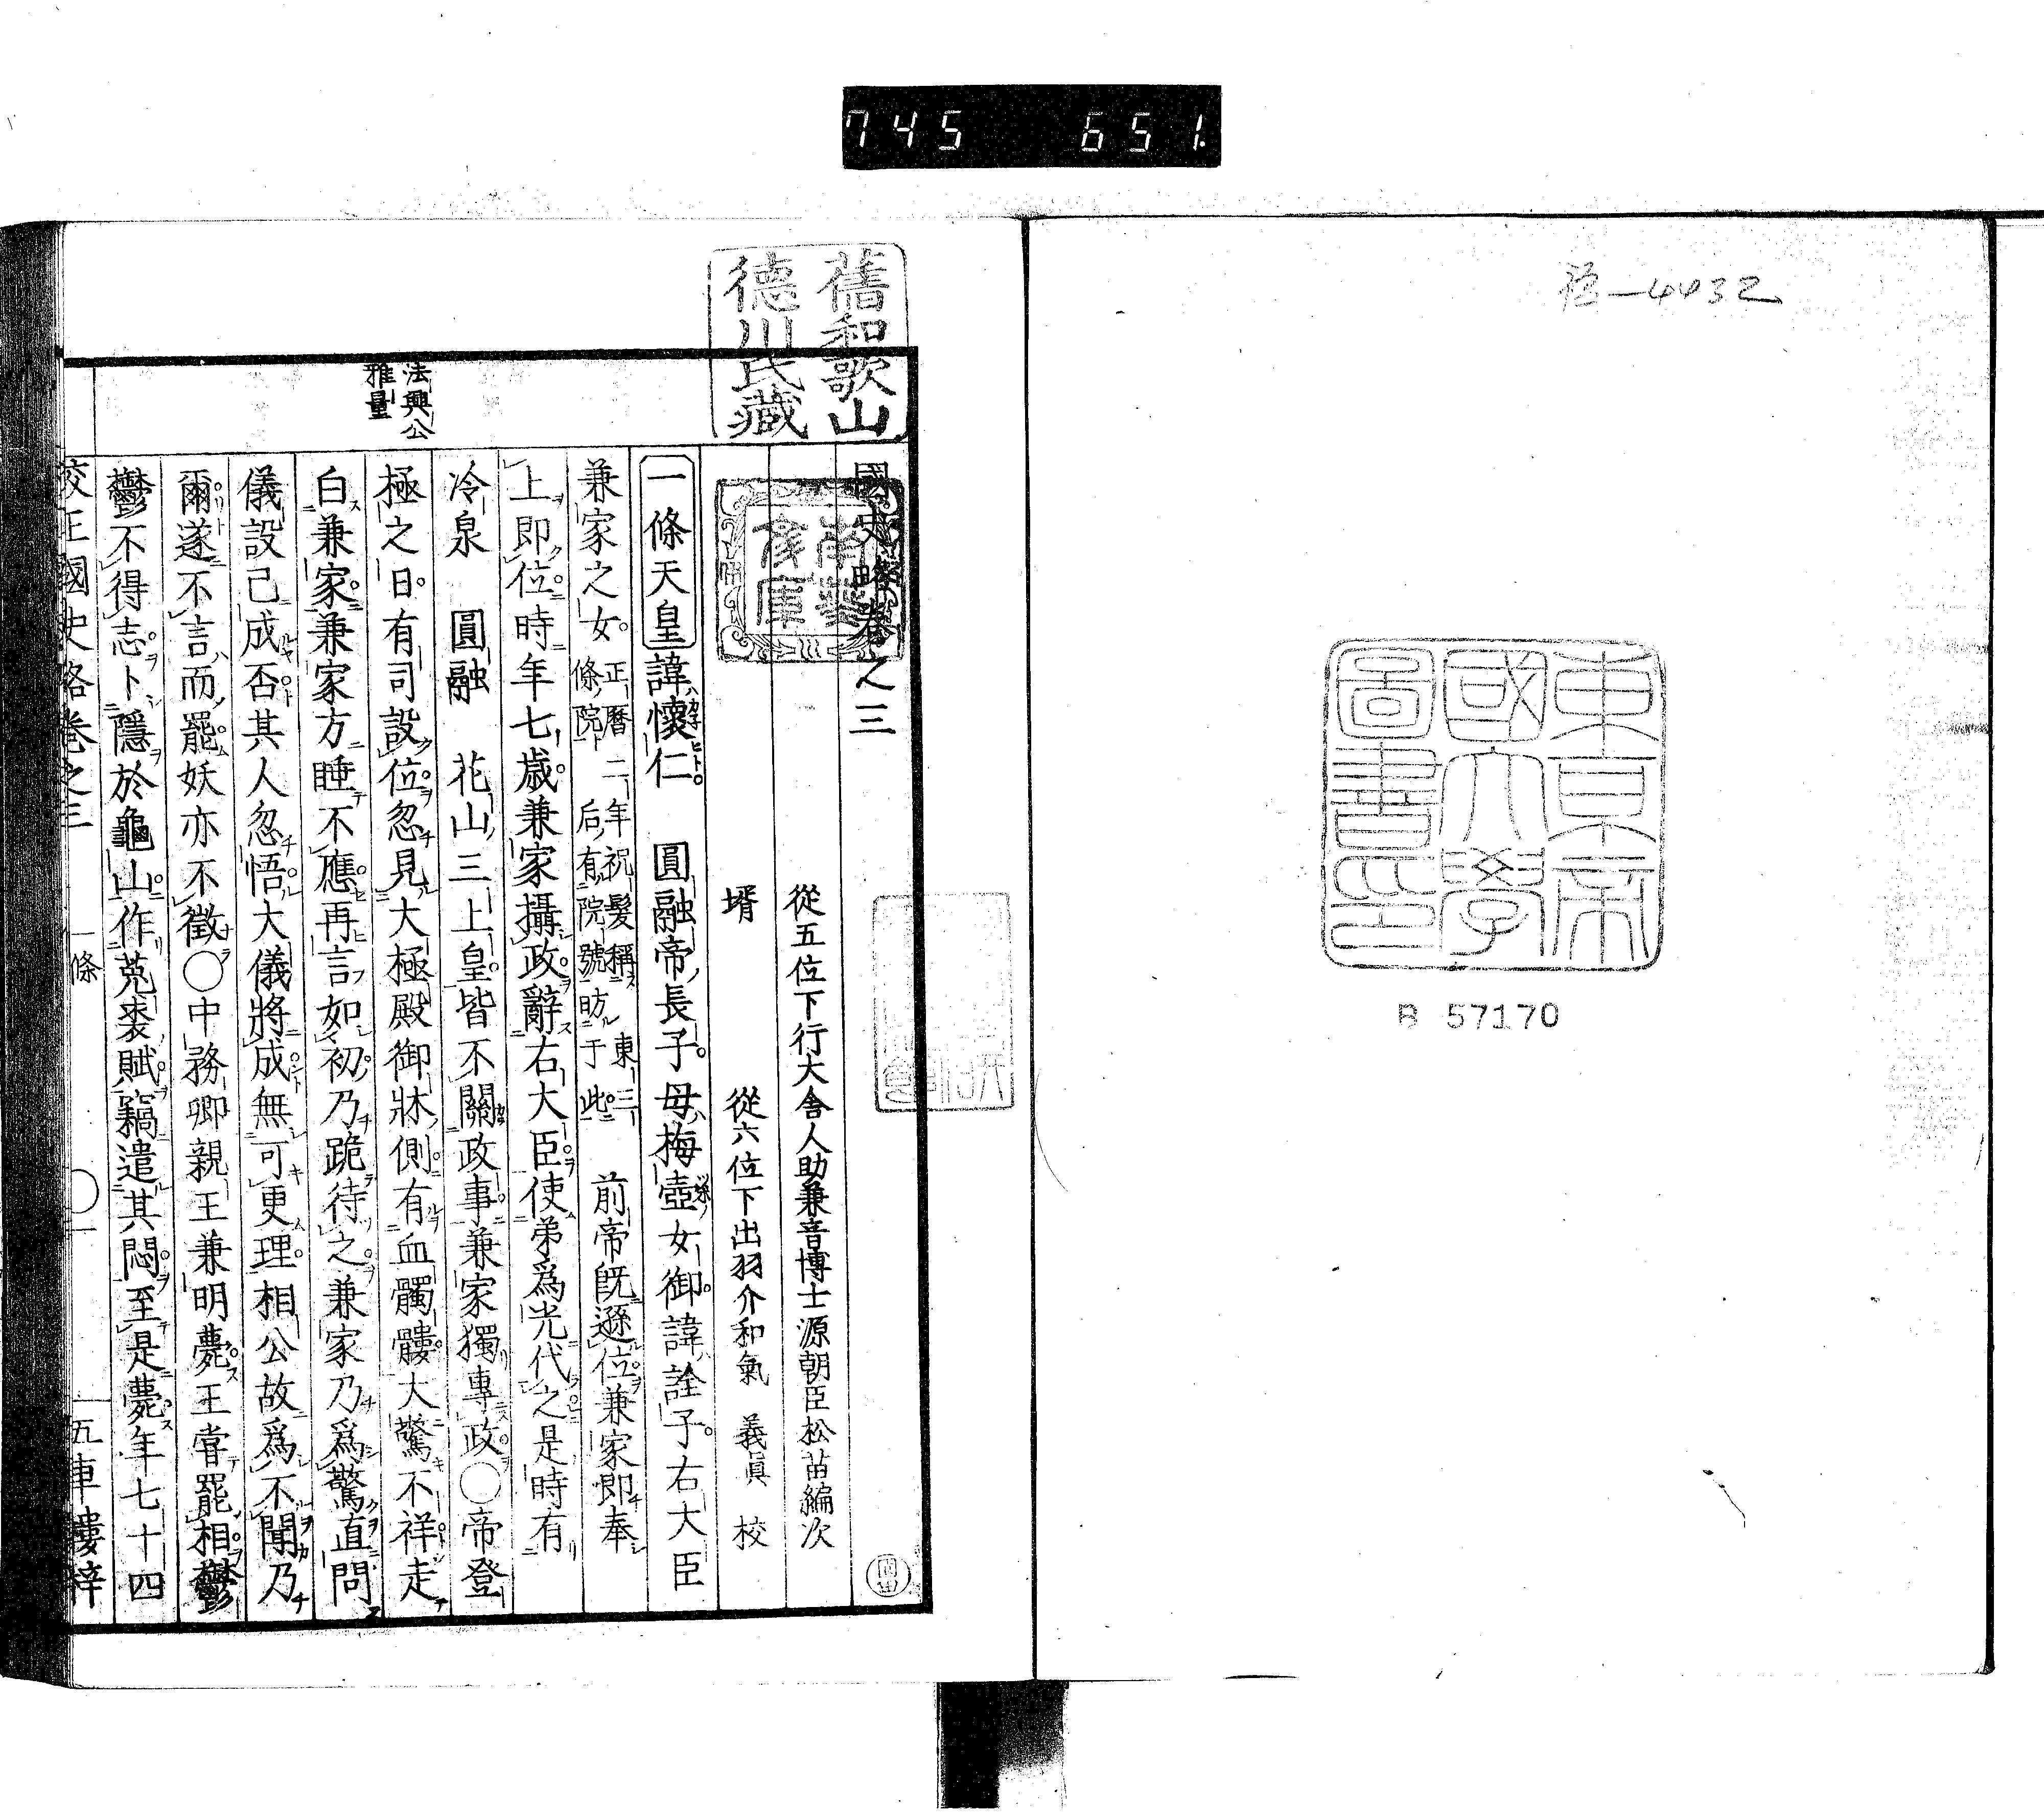 745 651.
4432
東京帝
國大學
圖書印
B 57170
舊和歌山
德川氏藏
南葵
文庫
國史略卷之三
從五位下行大舍人助兼音博士源朝臣松苗編次
壻 從六位下出羽介和氣 義眞 校
一條天皇諱懷仁 圓融帝長子母梅壺女御諱詮子右大臣
兼家之女正曆二年祝髮稱東三條院后有院號昉于此 前帝既遜位兼家即奉
上即位時年七歲兼家攝政辭右大臣使弟爲光代之是時有
冷泉 圓融 花山三上皇皆不關政事兼家獨專政○帝登
極之日有司設位忽見大極殿御牀側有血髑髏大驚不祥走
白兼家兼家方睡不應再言如初乃跪待之兼家乃爲驚直問
儀設已成否其人忽悟大儀將成無可更理相公故爲不聞乃
爾遂不言而罷妖亦不徵○中務卿親王兼明薨王嘗罷相鬱
鬱不得志卜隱於龜山作菟裘賦藁遣其悶至是薨年七十四
法興公
雅量
校正國史略卷之三 一條 ○一 五車樓梓